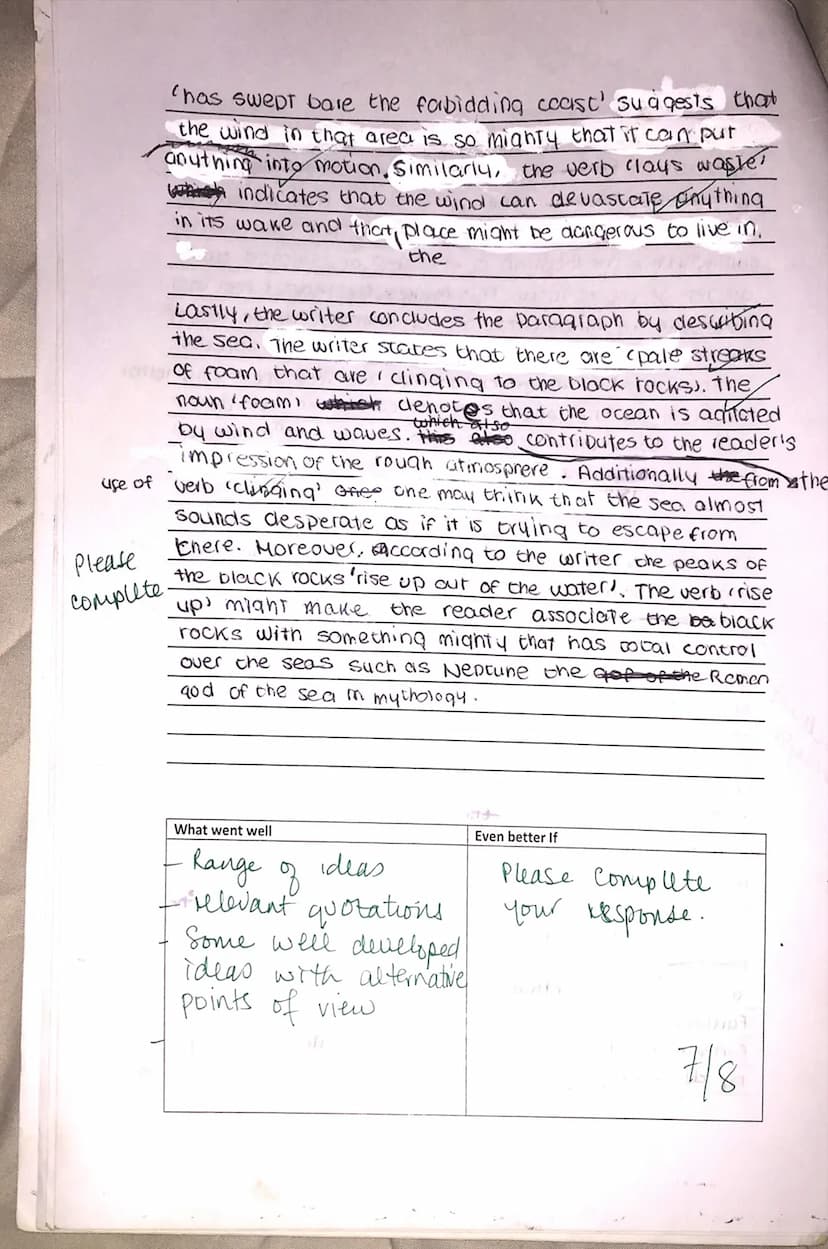 'has swept bare the forbidding coast' suggests that
the wind in that area is so mighty that it can put
anything into motion. Similarly, the verb 'lays waste'
which indicates that the wind can devastate anything
in its wake and that place might be dangerous to live in.
the
Lastly, the writer concludes the paragraph by describing
the sea. The writer states that there are 'pale streaks
of foam that are 'clinging to the black rocks'. The
noun 'foam' which denotes that the ocean is agitated
which also
by wind and waves. this also contributes to the reader's
impression of the rough atmosphere. Additionally the from the
use of
verb 'clinging' one may think that the sea almost
sounds desperate as if it is trying to escape from
there. Moreover, according to the writer the peaks of
Please
complete
the black rocks 'rise up out of the water'. The verb 'rise
up' might make the reader associate the black
rocks with something mighty that has total control
over the seas such as Neptune the Roman
god of the sea in mythology.
What went well
Even better If
- Range of ideas
- relevant quotations
- Some well developed
ideas with alternative
points of view
-
Please complete
your response.
7/8